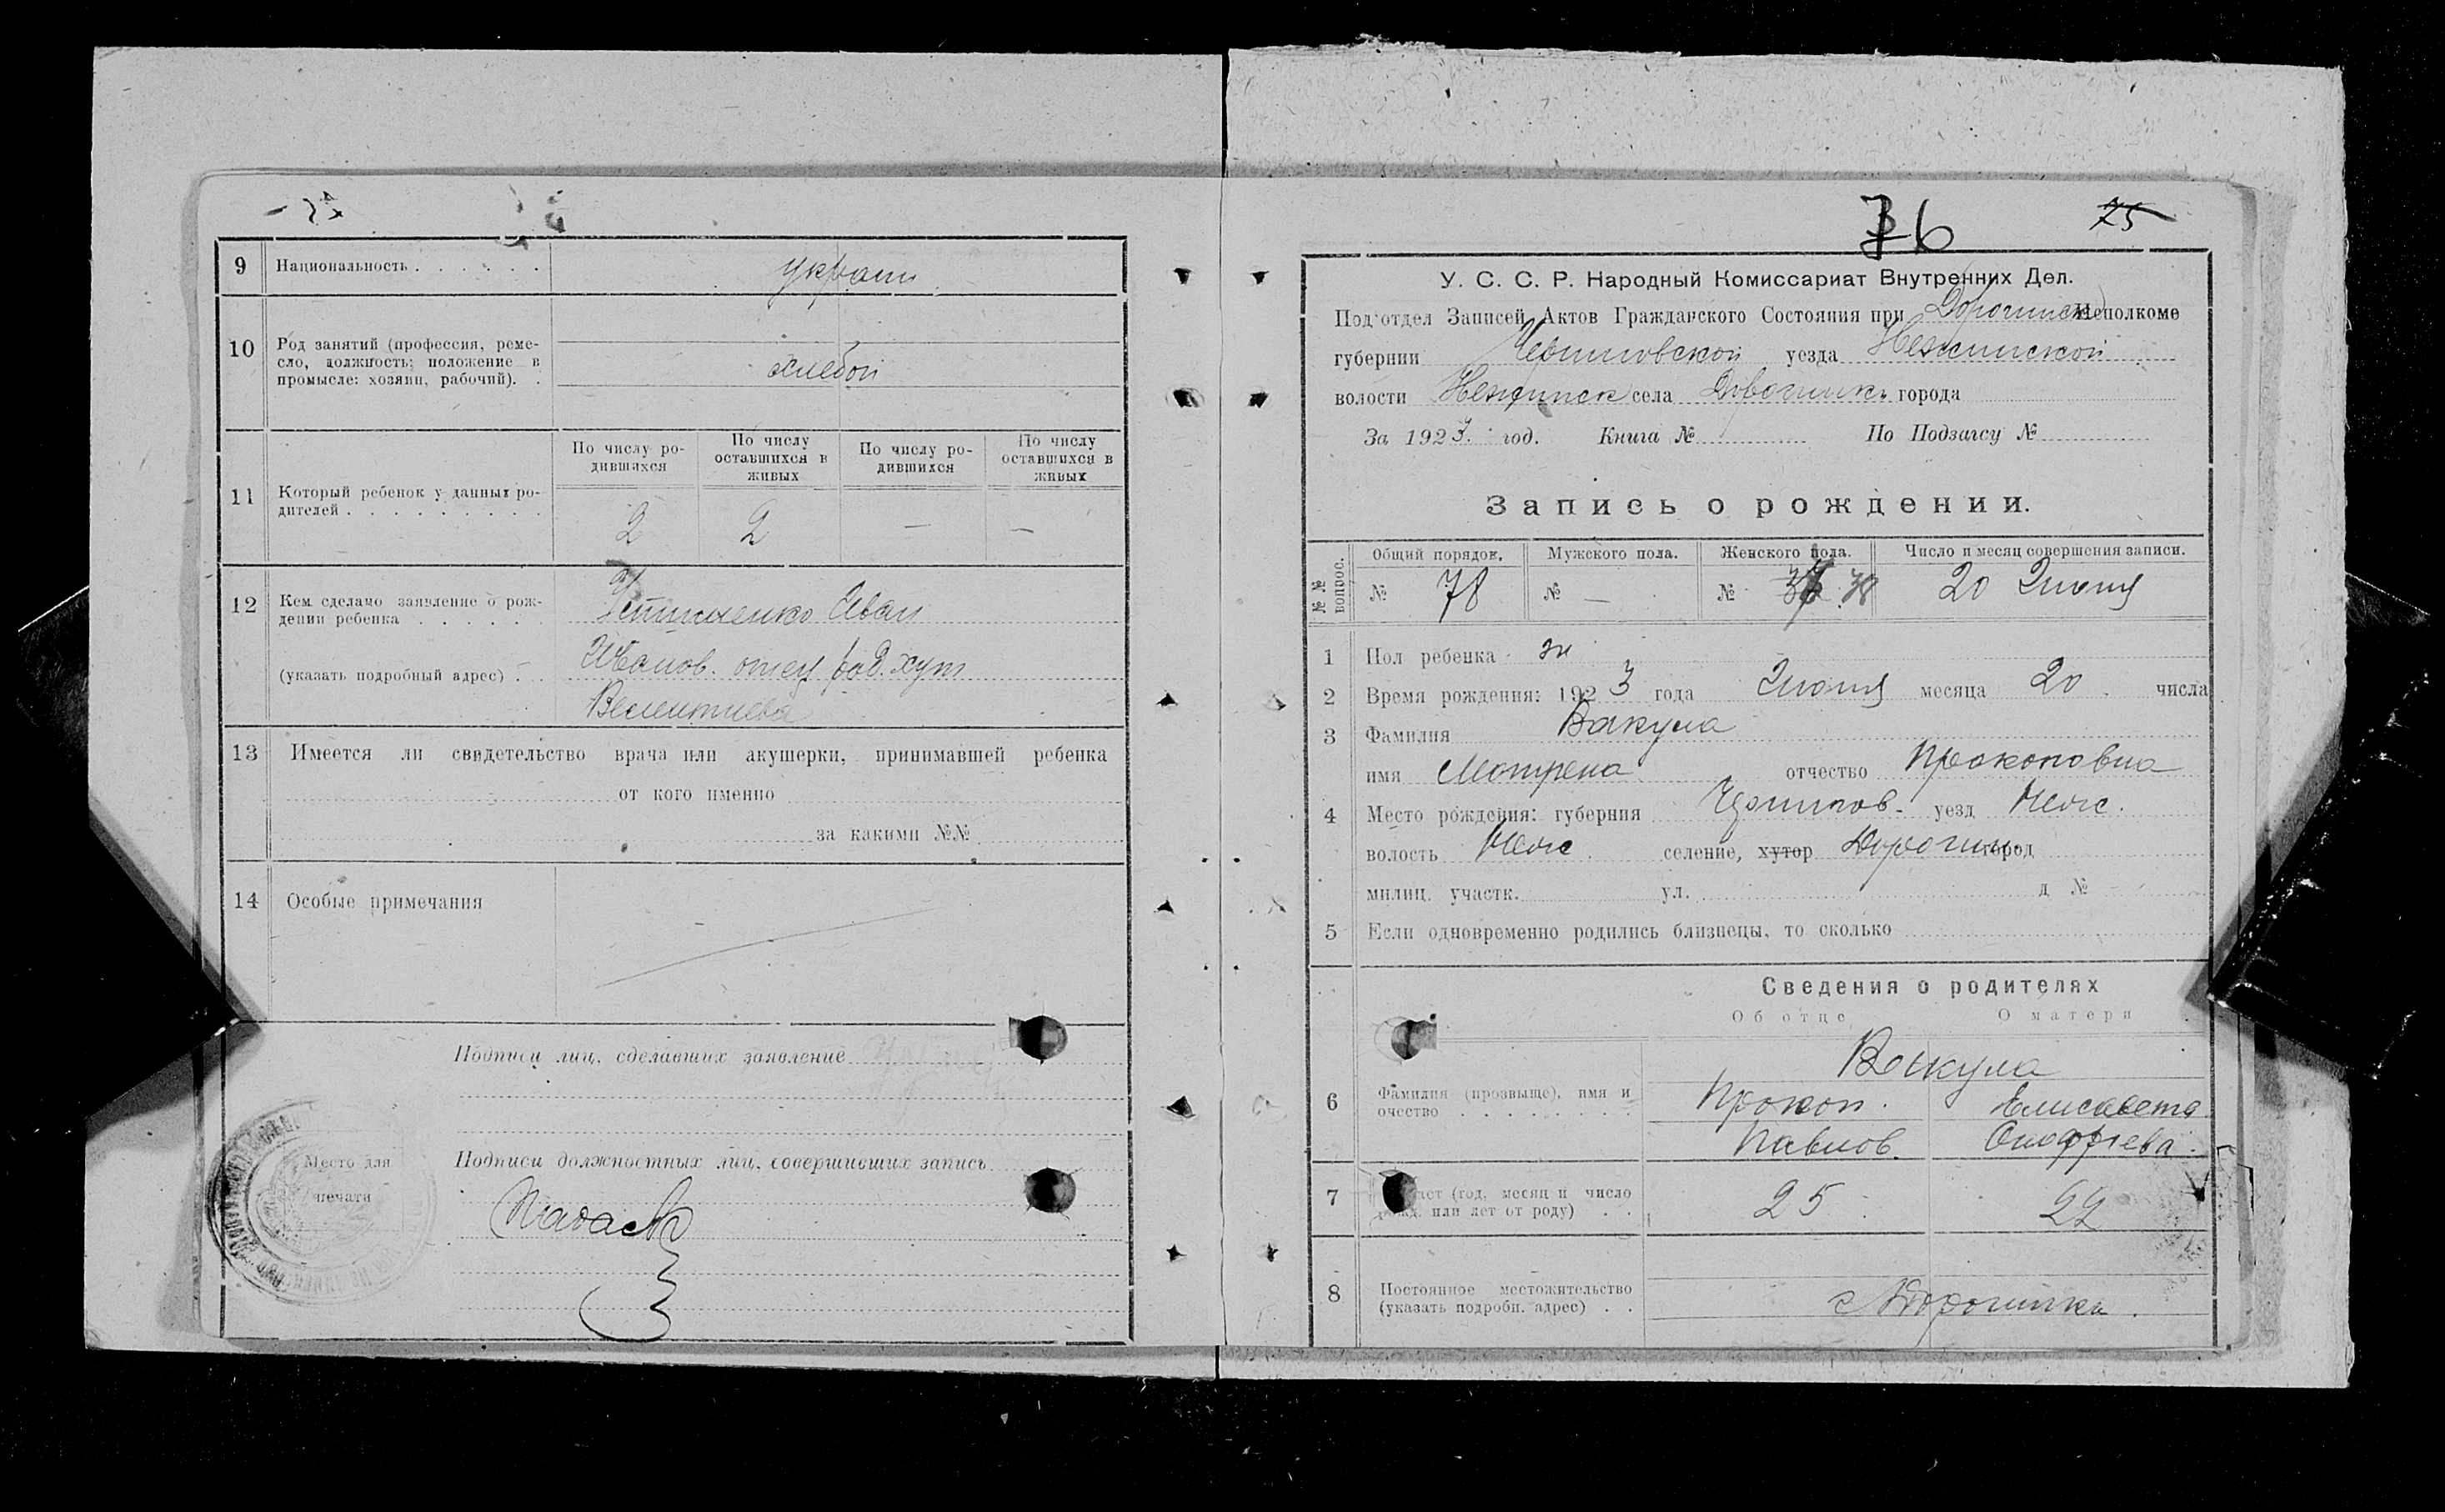 9 Национальность . . . . . . украин
10 Род занятий (профессия, реме-
сло, должность; положение в
промысле: хозяин, рабочий). . хлебоп
По числу ро-
дившихся
По числу
оставшихся в
живых
По числу ро-
дившихся
По числу
оставшихся в
живых
11 Который ребенок у данных ро-
дителей . . . . . . . . . 2 2 — —
12 Кем сделано заявление о рож-
дении ребенка . . . . . Устименко Иван
(указать подробный адрес) . . Иванов. отец хут
13 Имеется ли свидетельство врача или акушерки, принимавшей ребенка
от кого именно
за какими №№
14 Особые примечания
Подписи лиц, сделавших заявление
Место для
печати
Подписи должностных лиц, совершивших запись
76 75
У. С. С. Р. Народный Комиссариат Внутренних Дел.
Под'отдел Записей Актов Гражданского Состояния при Дорогинск Исполкоме
губернии Черниговской уезда Нежинской
волости Нежинск села Дорогинка города
За 1923. год. Книга № По Подзагсу №
Запись о рождении.
№№ вопрос.
Общий порядок. Мужского пола. Женского пола. Число и месяц совершения записи.
№ 78 № — № 38 20 Июня
1 Пол ребенка ж
2 Время рождения: 1923 года Июня месяца 20 числа
3 Фамилия Вакула
имя Мотрена отчество Прокоповна
4 Место рождения: губерния Чернигов. уезд Неж.
волость Неж. селение, хутор Дорогин. город
милиц. участк. ул. д №
5 Если одновременно родились близнецы, то сколько
Сведения о родителях
Об отце О матери
Вакула
6 Фамилия (прозвыще), имя и
очество . . . . . . . . Прокоп. Елисавета
Павлов. Онофриева.
7 (год, месяц и число
или лет от роду) . . 25 22
8 Постоянное местожительство
(указать подробн. адрес) . . с Дорогинка.